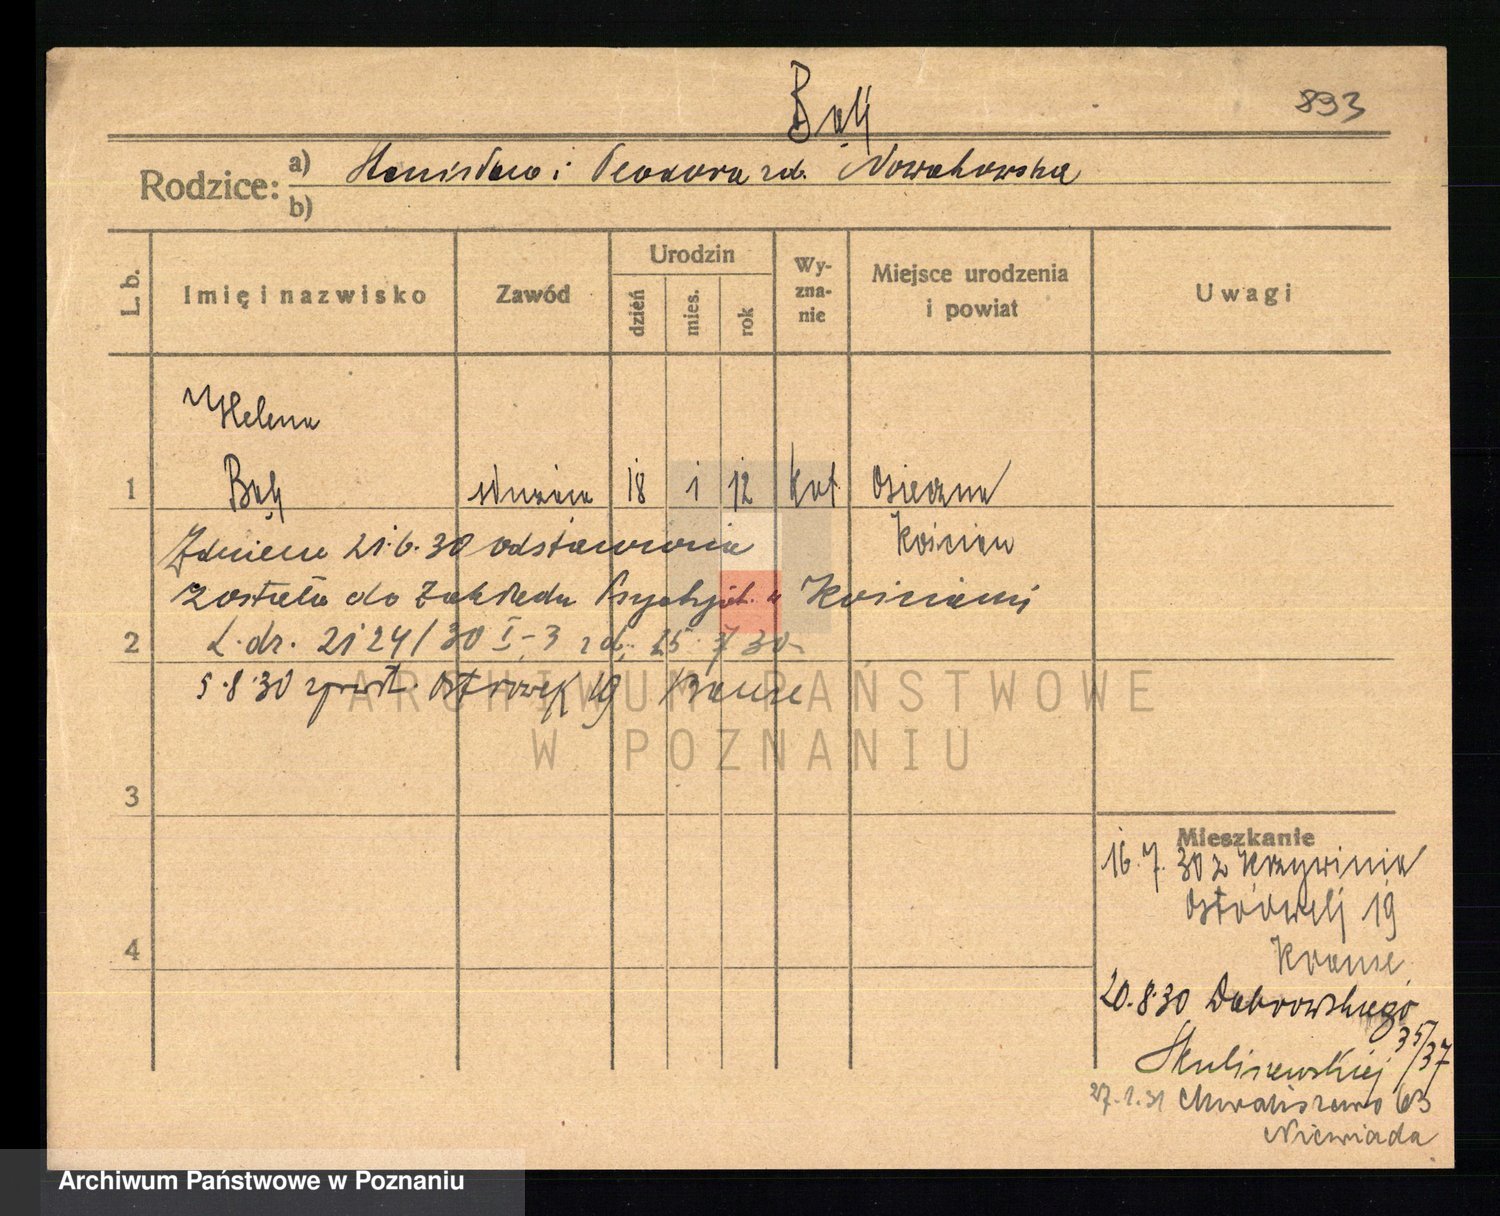 Bąk
893
Rodzice: a) Stanisław i Teodora zd. Nowakowska
b)
L. b.
Imię i nazwisko
Zawód
Urodzin
dzień
mies.
rok
Wy-
zna-
nie
Miejsce urodzenia
i powiat
Uwagi
Helena
1 Bąk służąca 18 1 12 kat Osieczna
Kościan
Z dniem 21.6.30 odstawiona
została do Zakładu Psychjat. w Kościanie
2 L. dz. 2124/30 I-3 z d. 15 7 30
5.8.30 Ostrówek 19
3
4
Mieszkanie
16.7.30 z Krzywinia
Ostrówek 19
Krause
20.8.30 Dąbrowskiego
35/37
Skuliszewskiej
27.1.31 Chwaliszewo 63
Niewiada
ARCHIWUM PAŃSTWOWE
W POZNANIU
Archiwum Państwowe w Poznaniu